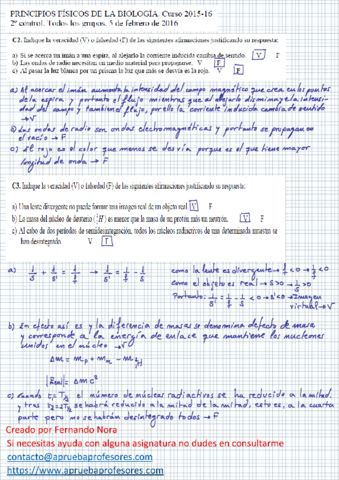 PRINCIPIOS FÍSICOS DE LA BIOLOGÍA. Curso 2015-16
2º control. Todos los grupos. 5 de febrero de 2016
C2. Indique la veracidad (V) o falsedad (F) de las siguientes afirmaciones justificando su respuesta:
a) Si se acerca un imán a una espira, al alejarlo la corriente inducida cambia de sentido. V F
b) Las ondas de radio necesitan un medio material para propagarse. V F
c) Al pasar la luz blanca por un prisma la luz que más se desvía es la roja. V F
a) Al acercar el imán aumenta la intensidad del campo magnético que crea en los puntos
de la espira y portanto el flujo mientras que al alejarlo disminuye la intensi-
dad del campo y tambien el flujo, por ello la corriente inducida cambia de sentido
→V
b) Las ondas de radio son ondas electromagnéticas y portanto se propagan en
el vacío → F
c) El rojo es el color que menos se desvía porque es el que tiene mayor
longitud de onda → F
C3. Indique la veracidad (V) o falsedad (F) de las siguientes afirmaciones justificando su respuesta:
a) Una lente divergente no puede formar una imagen real de un objeto real V F
b) La masa del núcleo de deuterio (²₁H) es menor que la masa de un protón más un neutrón. V F
c) Al cabo de dos periodos de semidesintegración, todos los núcleos radiactivos de una determinada muestra se
han desintegrado. V F
a) 1/s + 1/s' = 1/f → 1/s' = 1/f - 1/s como la lente es divergente → f < 0 → 1/f < 0
como el objeto es real → s > 0 → 1/s > 0
Portanto: 1/s' = 1/f - 1/s < 0 → s' < 0 → Imagen
virtual → V
b) En efecto así es y la diferencia de masas se denomina defecto de masa
y corresponde a la energía de enlace que mantiene los nucleones
unidos en el núcleo → V
Δm = mp + mn - m²₁H
|Eenl| = Δm c²
c) Cuando t = T½ el número de núcleos radiactivos se ha reducido a la mitad,
y tras t = 2T½ se habrá reducido a la mitad de la mitad, esto es, a la cuarta
parte pero no se habrán desintegrado todos → F
Creado por Fernando Nora
Si necesitas ayuda con alguna asignatura no dudes en consultarme
contacto@apruebaprofesores.com
https://www.apruebaprofesores.com